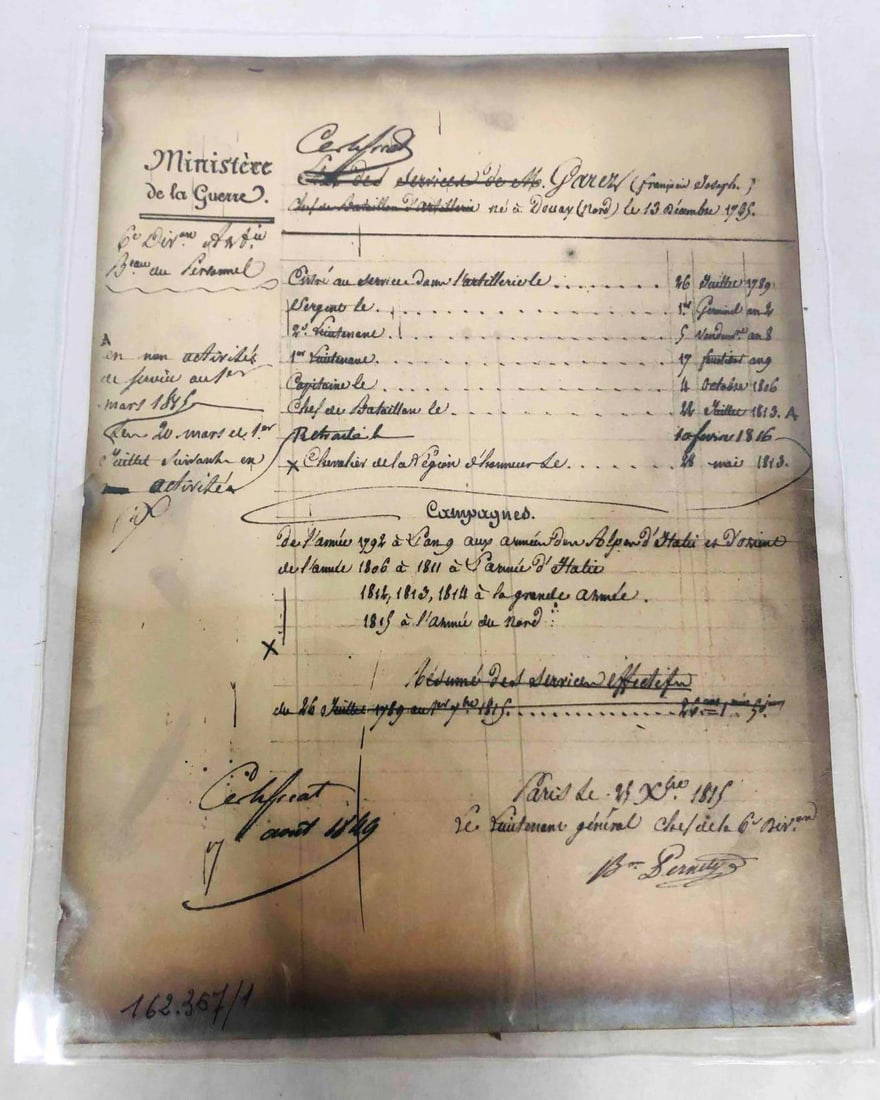 Certificat
Ministère
de la Guerre.
Etat des services de M. Garez (François Joseph.)
Chef de Bataillon d'artillerie né à Douay (Nord) le 13 Décembre
6e Divon Artie
Beau du Personnel
Entré au service dans l'artillerie le 26 Juillet 1789
Sergent le 1er Germinal an 2
2d Lieutenant 5 Vendre an 8
1er Lieutenant 17 an 9
Capitaine le 4 Octobre 1806
Chef de Bataillon le Juillet 1813. A
Retraité le 1816
X Chevalier de la Légion d'honneur le 28 mai 1813.
A
en non activité
de service au 1er
mars 1815
en 20 mars et 1er
Juillet suivant en
activité
Campagnes.
de l'année 1792 à l'an 9 aux armées des Alpes d'Italie et d'orient
de l'année 1806 à 1811 à l'armée d'Italie
1812, 1813, 1814 à la grande armée.
1815 à l'armée du Nord
X
Résumé des services effectifs
du 26 Juillet 1789 au 1er 7bre 1815. 26 ans 1 mois 5 jours
Certificat
17 août 1849
Paris le 25 Xbre 1815
Le Lieutenant général Chef de la 6e Divon
Bon Pernety
162.367/1